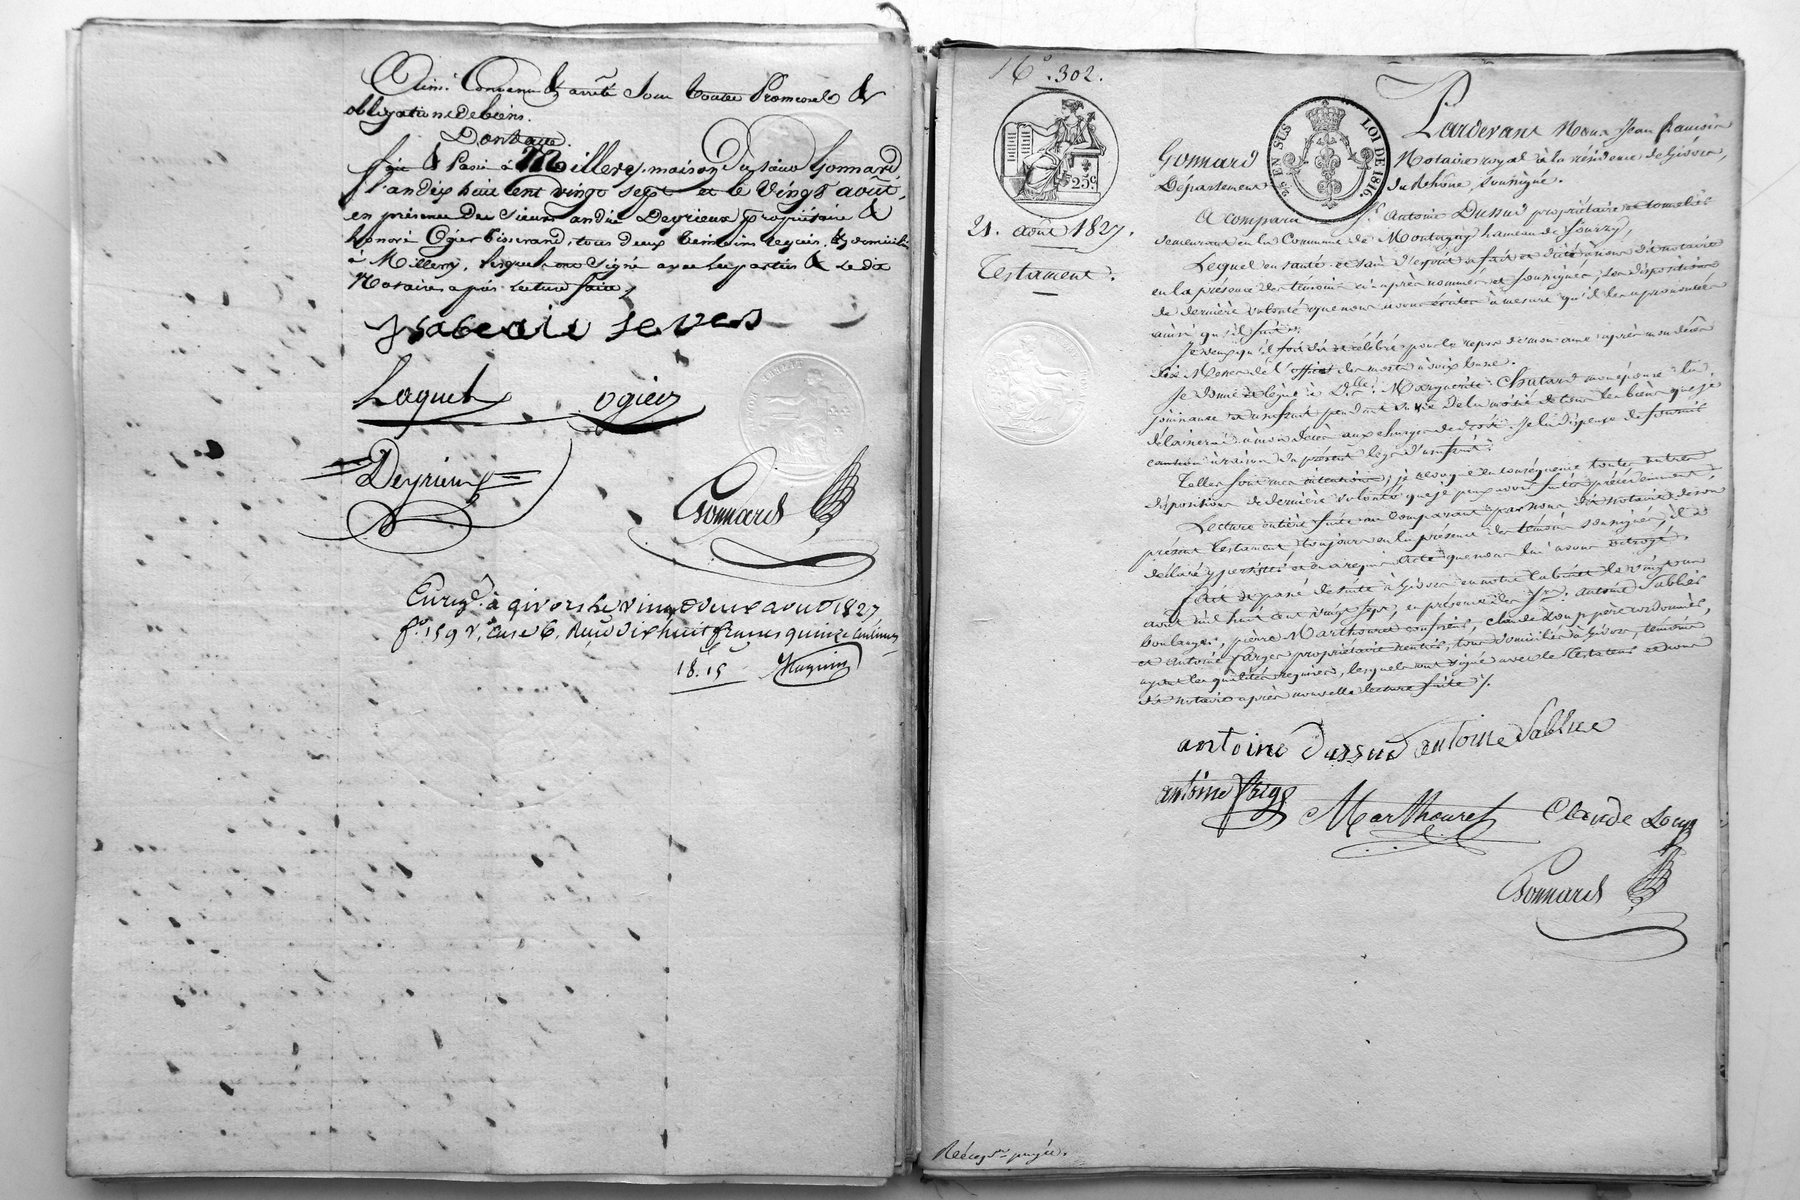 Ainsi Convenu & arrêté sous toutes Promesses &
obligations de biens.
Dont acte.
fait & Passé à Millery, maison du sieur Gonnard,
l'an dix huit cent vingt sept et le vingt août,
en présence des sieurs andré Deyrieux propriétaire &
honoré Ogier tisserand, tous deux témoins requis, & domiciliés
à Millery, lesquels ont signé avec les parties & le dit
Notaire après lecture faite,
Laquet ogier
Deyrieux
Gonnard
Enrégé. à givors le vingt deux aout 1827
fo. 159 Vo. Case 6. Reçu dix huit francs quinze centimes
18.15
No. 302.
25 EN SUS
LOI DE 1816.
25c
21. août 1827.
Testament.
Pardevant Nous Jean françois
Gonnard Notaire royal à la résidence de Givors,
Département du Rhône, soussigné.
A comparu Sr. Antoine Dussud propriétaire et
demeurant en la Commune de Montagny hameau de Sourzy,
Lequel en santé et sain d'esprit a fait et dicté à nous dit notaire
en la présence des témoins ci-après nommés et soussignés, ses dispositions
de dernière volonté que nous avons écrites à mesure qu'il les a prononcées
ainsi qu'il suit:
Je veux qu'il soit dit et célébré pour le repos de mon ame après mon décès
dix Messes de l'office des morts à voix basse.
Je donne et lègue à Dlle. Marguerite Chatard mon épouse la
jouissance et usufruit pendant sa vie de la moitié de tous les biens que je
délaisserai à mon décès aux charges de droit. Je la dispense de fournir
caution à raison du présent legs d'usufruit.
Telles sont mes intentions; je révoque en conséquence toutes autres
dispositions de dernière volonté que je peux avoir faites précédemment.
Lecture entière faite au comparant par nous dit notaire de son
présent testament, toujours en la présence des témoins soussignés, il a
déclaré y persister et en a requis acte que nous lui avons octroyé.
Fait et passé de suite à Givors en notre cabinet le vingt un
août mil huit cent vingt sept, en présence des Srs. antoine Sablier
boulanger, pierre Marthouret confiseur, Claude Loup père cordonnier,
et Antoine farges propriétaire rentier, tous domiciliés à Givors, témoins
ayant les qualités requises, lesquels ont signé avec le testateur et nous
dit notaire après nouvelle lecture faite /.
antoine Dussud antoine Sablier
antoine farge Marthouret Claude Loup
Gonnard